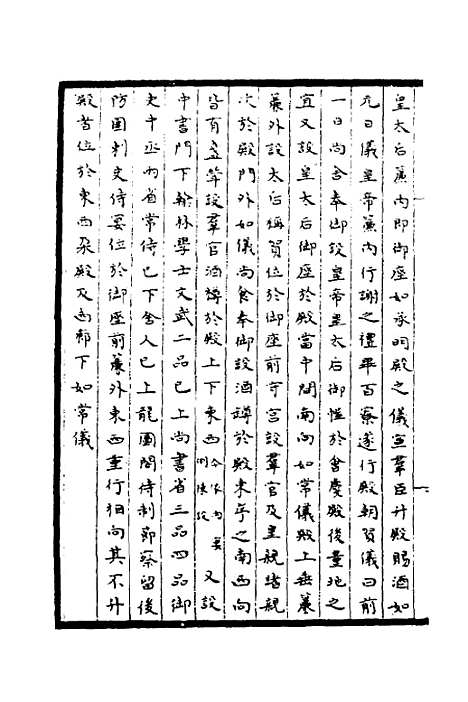 皇太后簾內即御座如承明殿之儀宣羣臣升殿賜酒如
元日儀皇帝簾內行謝之禮畢百寮遂行殿朝賀儀曰前
一日尚舍奉御設皇帝皇太后御幄於會慶殿後量地之
宜又設皇太后御座於殿當中間南向如常儀殿上垂簾
簾外設太后稱賀位於御座前守宮設羣官及皇親諸親
次於殿門外如儀尚食奉御設酒罇於殿東序之南西向
皆有坫羃設羣官酒罇於殿上下東西 又設
中書門下翰林學士文武二品已上尚書省三品四品御
史中丞兩省常侍已下舍人已上龍圖閣待制節察留後
防團刺史侍宴位於御座前簾外東西重行相向其不升
殿者位於東西朵殿及兩廊下如常儀